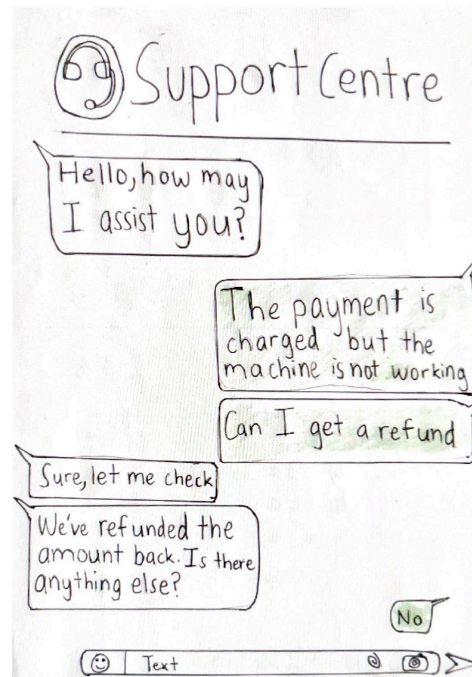 Support Centre
Hello, how may
I assist you?
The payment is
charged but the
machine is not working
Can I get a refund
Sure, let me check
We've refunded the
amount back. Is there
anything else?
No
Text